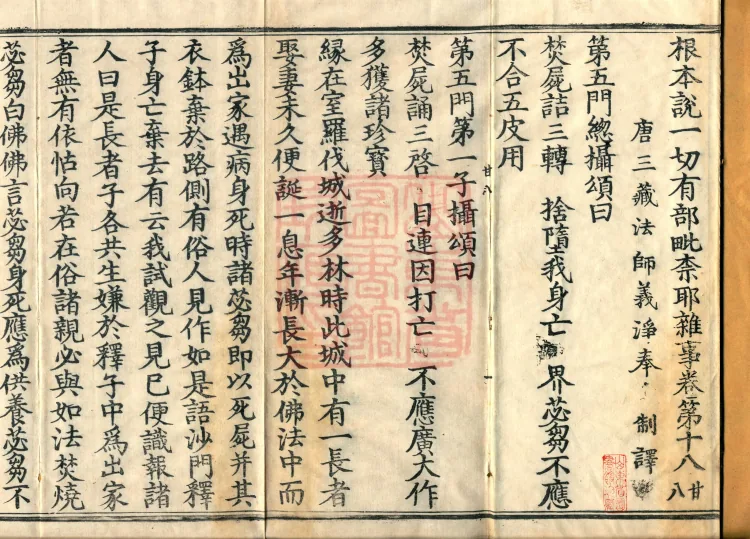 根本說一切有部毗柰耶雜事卷第十八 甘八
唐三藏法師義淨奉 制譯
第五門總攝頌曰
焚屍詰三轉 捨墮我身亡 界苾芻不應
不合五皮用
第五門第一子攝頌曰
焚屍誦三啓 目連因打亡 不應廣大作
多獲諸珍寶
緣在室羅伐城逝多林時此城中有一長者
娶妻未久便誕一息年漸長大於佛法中而
爲出家遇病身死時諸苾芻即以死屍并其
衣鉢棄於路側有俗人見作如是語沙門釋
子身亡棄去有云我試觀之見已便識報諸
人曰是長者子各共生嫌於釋子中爲出家
者無有依怙向若在俗諸親必與如法焚燒
苾芻白佛佛言苾芻身死應爲供養苾芻不